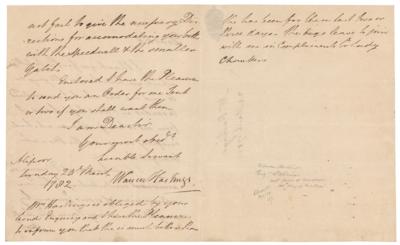 not fail to give the necessary Di-
rections for accomodating you both
with the Speedwell & the smaller
Yatch.
Enclosed I have the Pleasure
to send you an Order for one Tent
or two if you shall want them
I am Dear Sir
Your most obed.t
humble Servant
Warren Hastings
Alipoor
Sunday 23.d March
1782
Mrs Hastings is obliged by your
kind Enquiry and I have the Pleasure
to inform you that she is much better than
She has been for these last two or
three days. She begs leave to join
with me in Compliments to Lady
Chambers